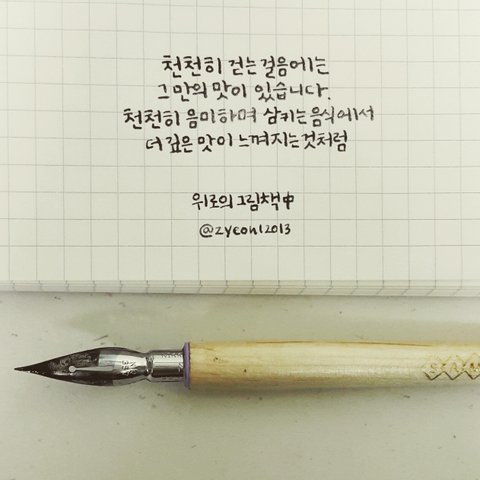 천천히 걷는 걸음에는
그 만의 맛이 있습니다.
천천히 음미하며 삼키는 음식에서
더 깊은 맛이 느껴지는것처럼
위로의 그림책 中
@zyeon12013